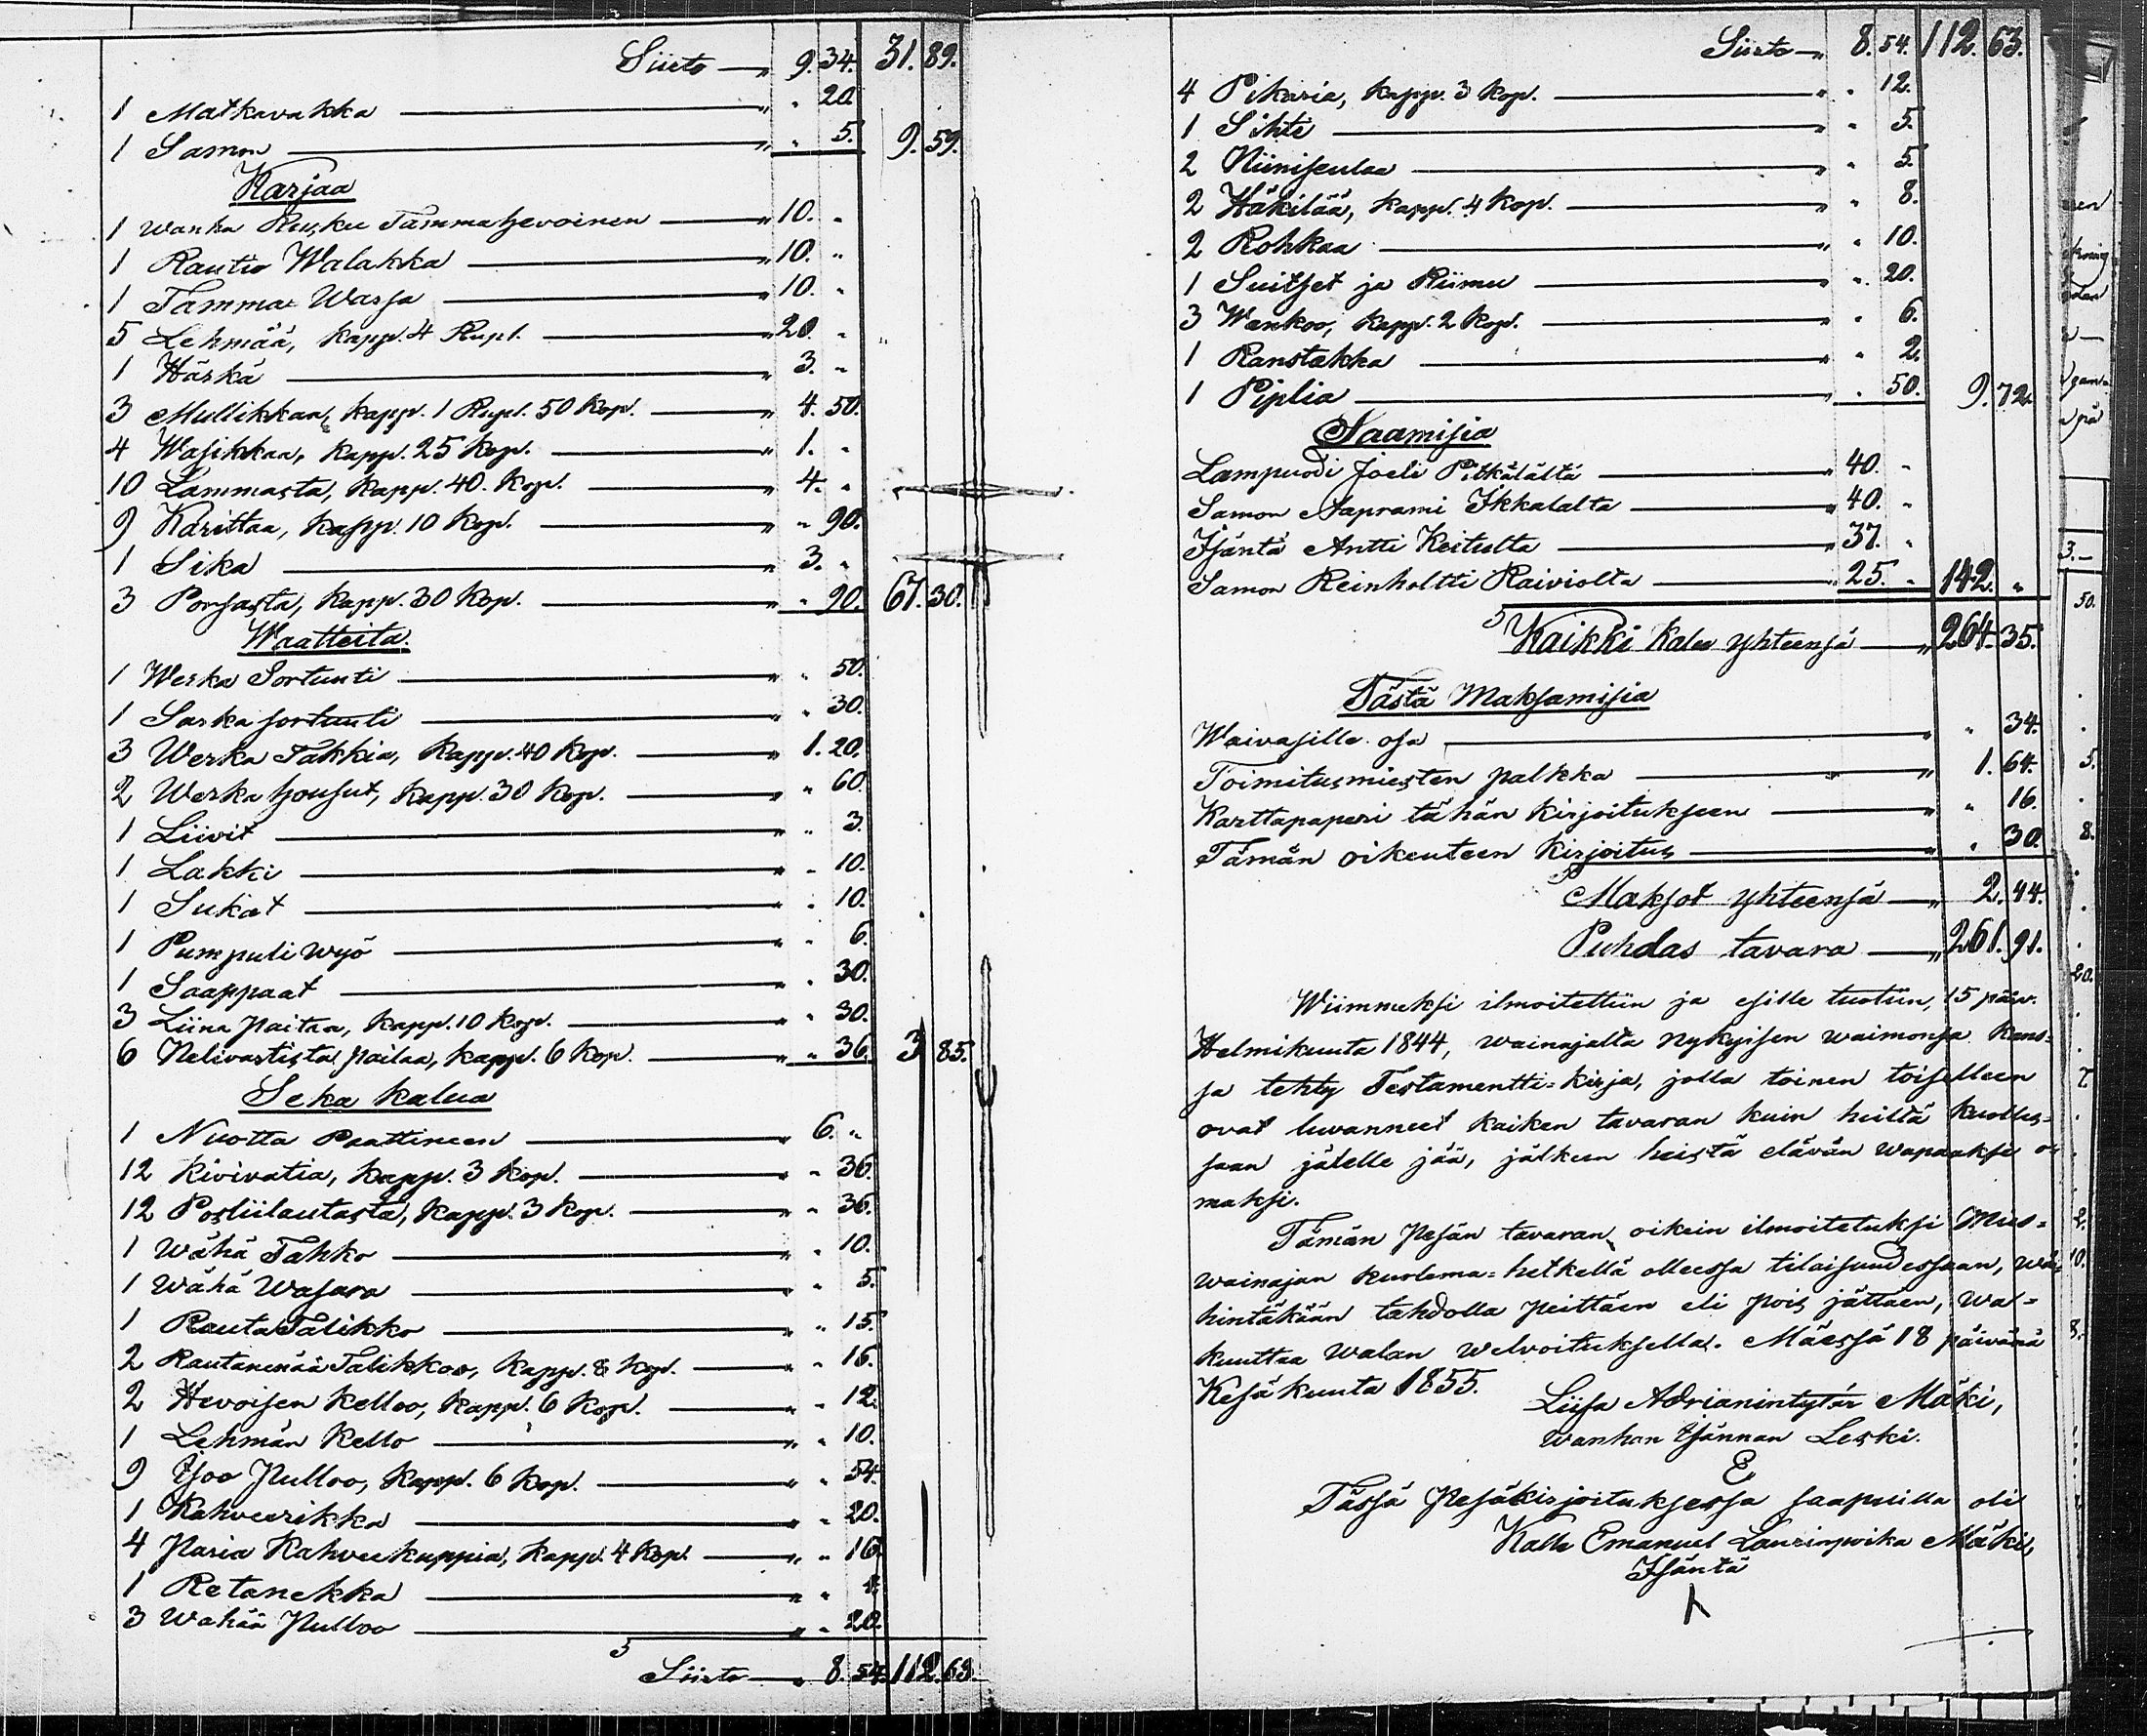 Siirto — " 9. 34. 31. 89.
1 Matkavakka — " " 20.
1 Samon — " " 5. 9. 59.
Karjaa
1 Wanha Rusku Tammahevoinen — " 10. "
1 Rautio Walakka — " 10. "
1 Tamma Warsa — " 10. "
5 Lehmää, kapp. 4 Rupl. — " 20. "
1 Härkä — " 3. "
3 Mullikkaa, kapp. 1 Rupl. 50 Kop. — " 4. 50.
4 Wasikkaa, kapp. 25 Kop. — " 1. "
10 Lammasta, kapp. 40. Kop. — " 4. "
9 Karittaa, kapp. 10 Kop. — " " 90.
1 Sika — " 3. "
3 Porsasta, kapp. 30 Kop. — " " 90. 67. 30.
Waatteita.
1 Werka Sortuuti — " " 50.
1 Sarka sortuuti — " " 30.
3 Werka Takkia, kapp. 40 Kop. — " 1. 20.
2 Werka housut, kapp. 30 Kop. — " " 60.
1 Liivit — " " 3.
1 Lakki — " " 10.
1 Sukat — " " 10.
1 Pumpuli wyö — " " 6.
1 Saappaat — " " 30.
3 Liina paitaa, kapp. 10 Kop. — " " 30.
6 Nelivartista paitaa, kapp. 6 Kop. — " " 36. 3 85.
Seka kalua
1 Nuotta Paattineen — " 6. "
12 Kivivatia, kapp. 3 Kop. — " " 36.
12 Posliilautasta, kapp. 3 Kop. — " " 36.
1 Wähä Tahko — " " 10.
1 Wähä Wasara — " " 5.
1 Rauta Talikko — " " 15.
2 Rautanenää Talikkoo, kapp. 8 Kop. — " " 16.
2 Hevoisen Kelloo, kapp. 6 Kop. — " " 12.
1 Lehmän Kello — " " 10.
9 Isoo Pulloo, kapp. 6 Kop. — " " 54.
1 Kahveerikka — " " 20.
4 Paria Kahveekuppia, kapp. 4 Kop. — " " 16.
1 Retanekka — " "
3 Wähää Pulloo — " " 20.
Siirto — " 8. 54. 112. 63.
Siirto — " 8. 54. 112. 63.
4 Pikaria, kapp. 3 Kop. — " " 12.
1 Sihti — " " 5.
2 Niiniseulaa — " " 5.
2 Häkilää, kapp. 4 Kop. — " " 8.
2 Rohkaa — " " 10.
1 Suitset ja Riimu — " " 20.
3 Wankoo, kapp. 2 Kop. — " " 6.
1 Ranstakka — " " 2.
1 Piplia — " " 50. 9. 72.
Saamisia
Lampuodi Joeli Pitkälältä — " 40. "
Samon Aaprami Ikkalalta — " 40. "
Isäntä Antti Keitulta — " 37. "
Samon Reinholtti Raiviolta — " 25. " 142. "
Kaikki Kalu yhteensä — " 264. 35.
Tästä Maksamisia
Waivasille osa — " " 34.
Toimitusmiesten palkka — " 1. 64.
Karttapaperi tähän kirjoitukseen — " " 16.
Tämän oikeuteen kirjoitus — " " 30.
Maksot yhteensä — " 2. 44.
Puhdas tavara — " 261. 91.
Wiimmeksi ilmoitettiin ja esille tuotiin, 15 päiv.
Helmikuuta 1844, wainajalta nykyisen waimonsa kans=
sa tehty Testamentti=kirja, jolla toinen toiselleen
ovat luvanneet kaiken tavaran kuin heiltä kuollus=
saan jälelle jää, jälkeen heistä elävän wapaaksi o=
maksi.
Tämän Pesän tavaran, oikein ilmoitetuksi Mies=
wainajan kuolema=hetkellä olleessa tilaisuudessaan, wä=
hintäkään tahdolla peittäen eli pois jättäen, wa=
kuuttaa walan welvoituksella. Mäessä 18 päivänä
Kesäkuuta 1855.
Liisa Adrianintytär Mäki,
wanhan Isännän Leski.
E
Tässä Pesäkirjoituksessa saapuilla oli
Kalle Emanuel Laurinpoika Mäki,
Isäntä